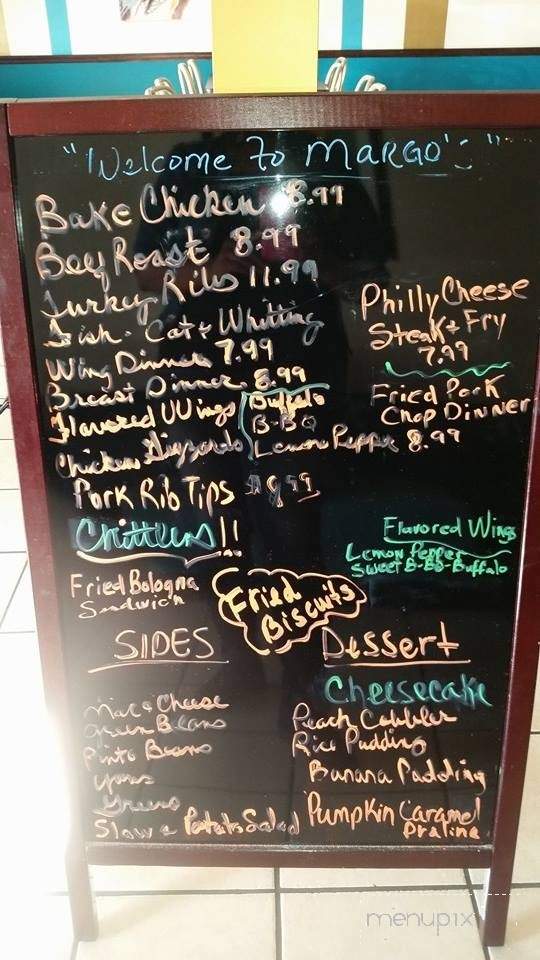 "Welcome To MARGO's"
Bake Chicken 8.99
Beef Roast 8.99
Turkey Ribs 11.99
Fish - Cat & Whitting
Wing Dinner 7.99
Breast Dinner 8.99
Flavored Wings
Buffalo
B-BQ
Lemon Pepper
Chicken Gizzards
Pork Rib Tips $8.99
Chittlens!!
Fried Bologna
Sandwich
Philly Cheese
Steak & Fry
7.99
Fried Pork
Chop Dinner
8.99
Flavored Wings
Lemon Pepper
Sweet B-BQ-Buffalo
Fried
Biscuits
SIDES
Mac & Cheese
Green Beans
Pinto Beans
Yams
Greens
Slaw & Potato Salad
Dessert
Cheesecake
Peach Cobbler
Rice Pudding
Banana Pudding
Pumpkin Caramel
Praline
menupix